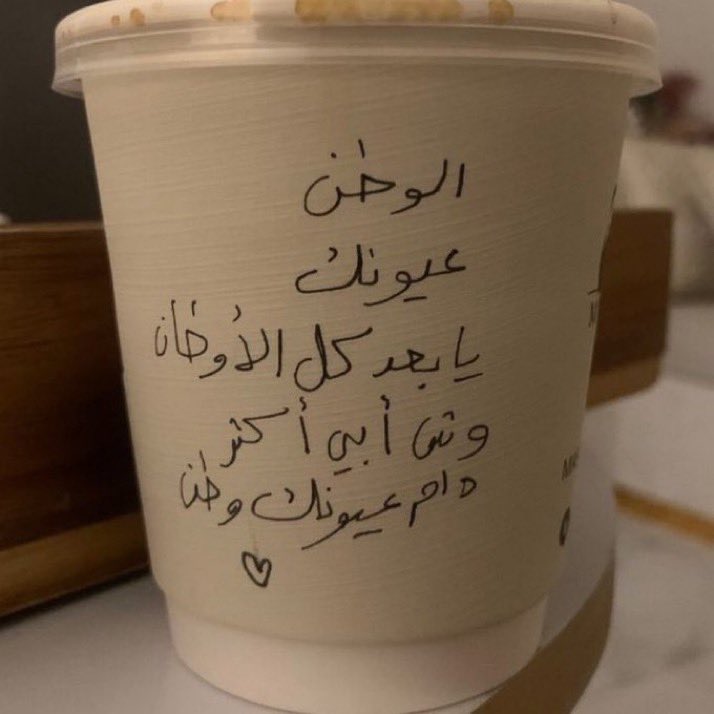 الوطن
عيونك
يا بعد كل الأوطان
وش أبي أكثر
دام عيونك وطن